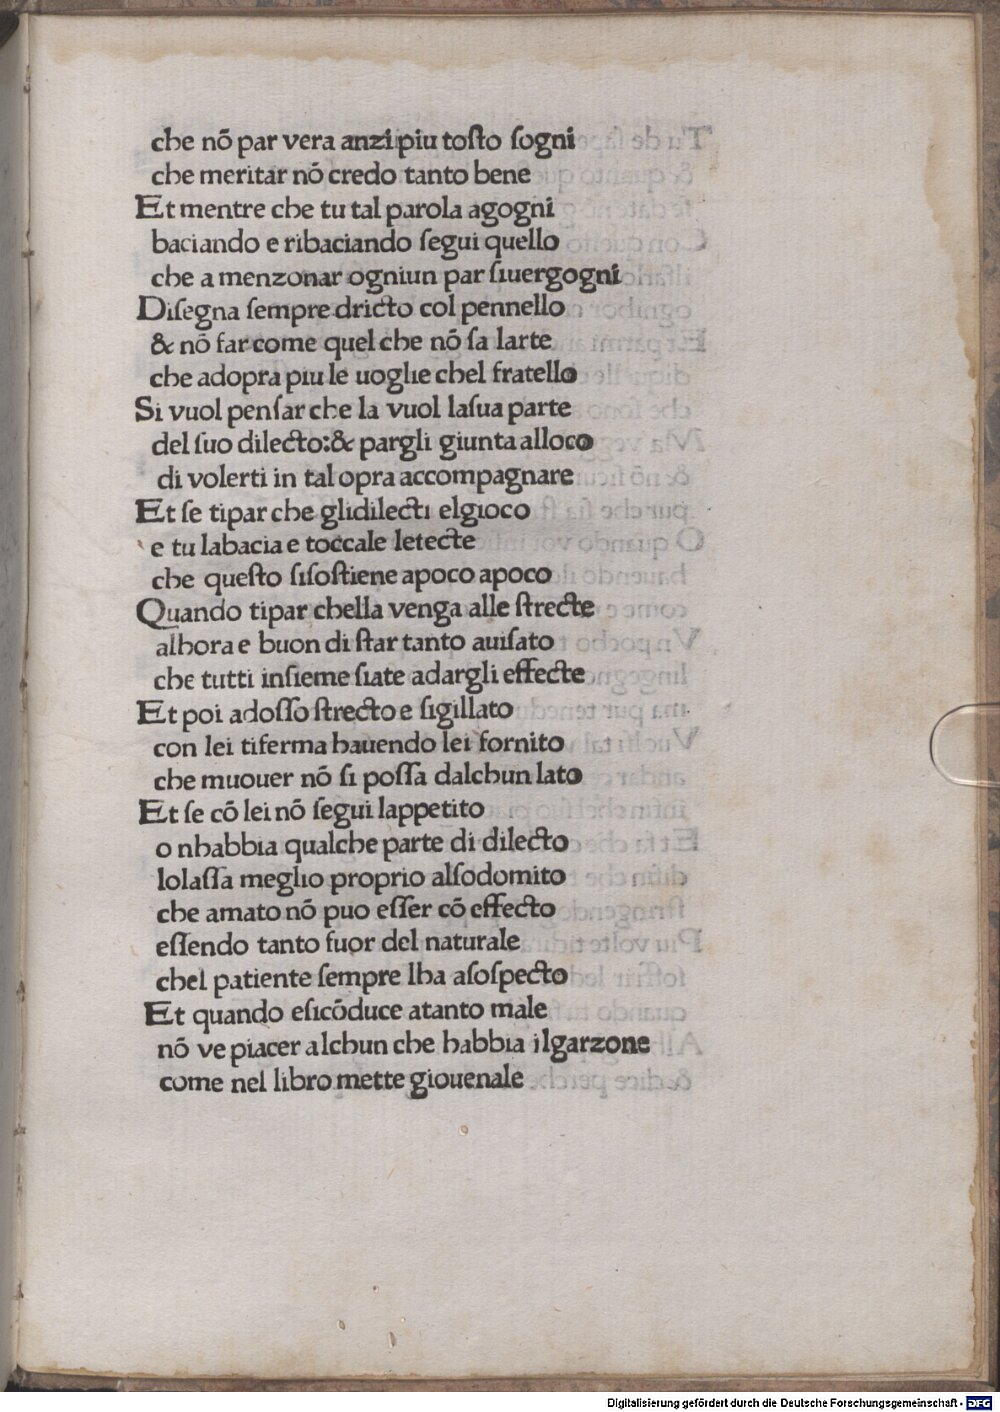 che nō par vera anzi piu toſto ſogni
che meritar nō credo tanto bene
Et mentre che tu tal parola agogni
baciando e ribaciando ſegui quello
che a menzonar ogniun par ſiuergogni
Diſegna ſempre dricto col pennello
& nō far come quel che nō ſa larte
che adopra piu le uoglie chel fratello
Si vuol penſar che la vuol laſua parte
del ſuo dilecto:& pargli giunta alloco
di volerti in tal opra accompagnare
Et ſe tipar che glidilecti elgioco
e tu labacia e toccale letecte
che queſto ſiſoſtiene apoco apoco
Quando tipar chella venga alle ſtrecte
alhora e buon di ſtar tanto auiſato
che tutti inſieme ſiate adargli effecte
Et poi adoſſo ſtrecto e ſigillato
con lei tiferma hauendo lei fornito
che muouer nō ſi poſſa dalchun lato
Et ſe cō lei nō ſegui lappetito
o nhabbia qualche parte di dilecto
lolaſſa meglio proprio alſodomito
che amato nō puo eſſer cō effecto
eſſendo tanto fuor del naturale
chel patiente ſempre lha aſoſpecto
Et quando eſicōduce atanto male
nō ve piacer alchun che habbia ilgarzone
come nel libro mette giouenale
Digitalisierung gefördert durch die Deutsche Forschungsgemeinschaft - DFG